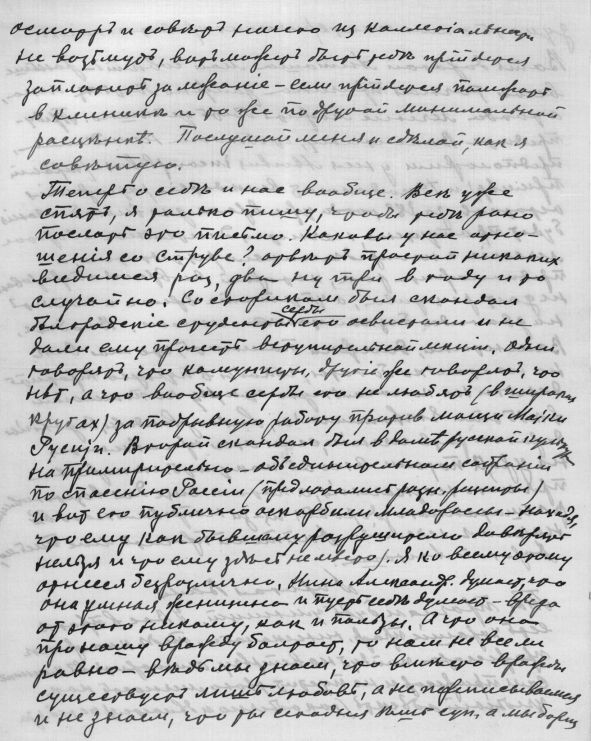 осмотръ и совѣтъ ничего изъ коллегіальности
не возьмутъ, вотъ можетъ быть тебѣ прійдется
заплатить за лежаніе – если прійдется полежать
в клиникѣ и то же по другой минимальной
расцѣнкѣ. Послушай меня и сдѣлай, как я
совѣтую.
Теперь о себѣ и нас вообще. Всѣ уже
спятъ, я только пишу, чтобы тебѣ рано
послать это письмо. Каковы у нас отно-
шенія со Струве? отвѣтъ простой никаких
видимся раз, два ну три в году и то
случайно. Со стариком был скандал
бѣлградскіе студенты сербы его освистали и не
дали ему прочесть вступительной лекціи. Одни
говорятъ, что комунисты, другіе же говорятъ, что
нѣт, а что вообще сербы его не любятъ (в широких
кругах) за подрывную работу против мощи Мајки
Русији. Второй скандал был в домѣ русской культуры
на примирительно – объединительном собраніи
по спасенію Россіи (предлагались разн. рецепты)
и вот его публично оскорбили Младороссы – находя,
что ему как бывшему разрушителю довѣрять
нельзя и что ему здѣсь не мѣсто). Я ко всему этому
отнесся безразлично, Нина Александр. думает, что
она умная женщина и пусть себѣ думает – вреда
от этого никому, как и пользы. А что она
про нашу вражду болтает, то нам не все ли
равно – вѣдь мы знаем, что вмѣсто вражды
существуетъ лишь любовь, а не переписываемся
и не знаем, что ты сегодня ѣшь суп, а мы борщ